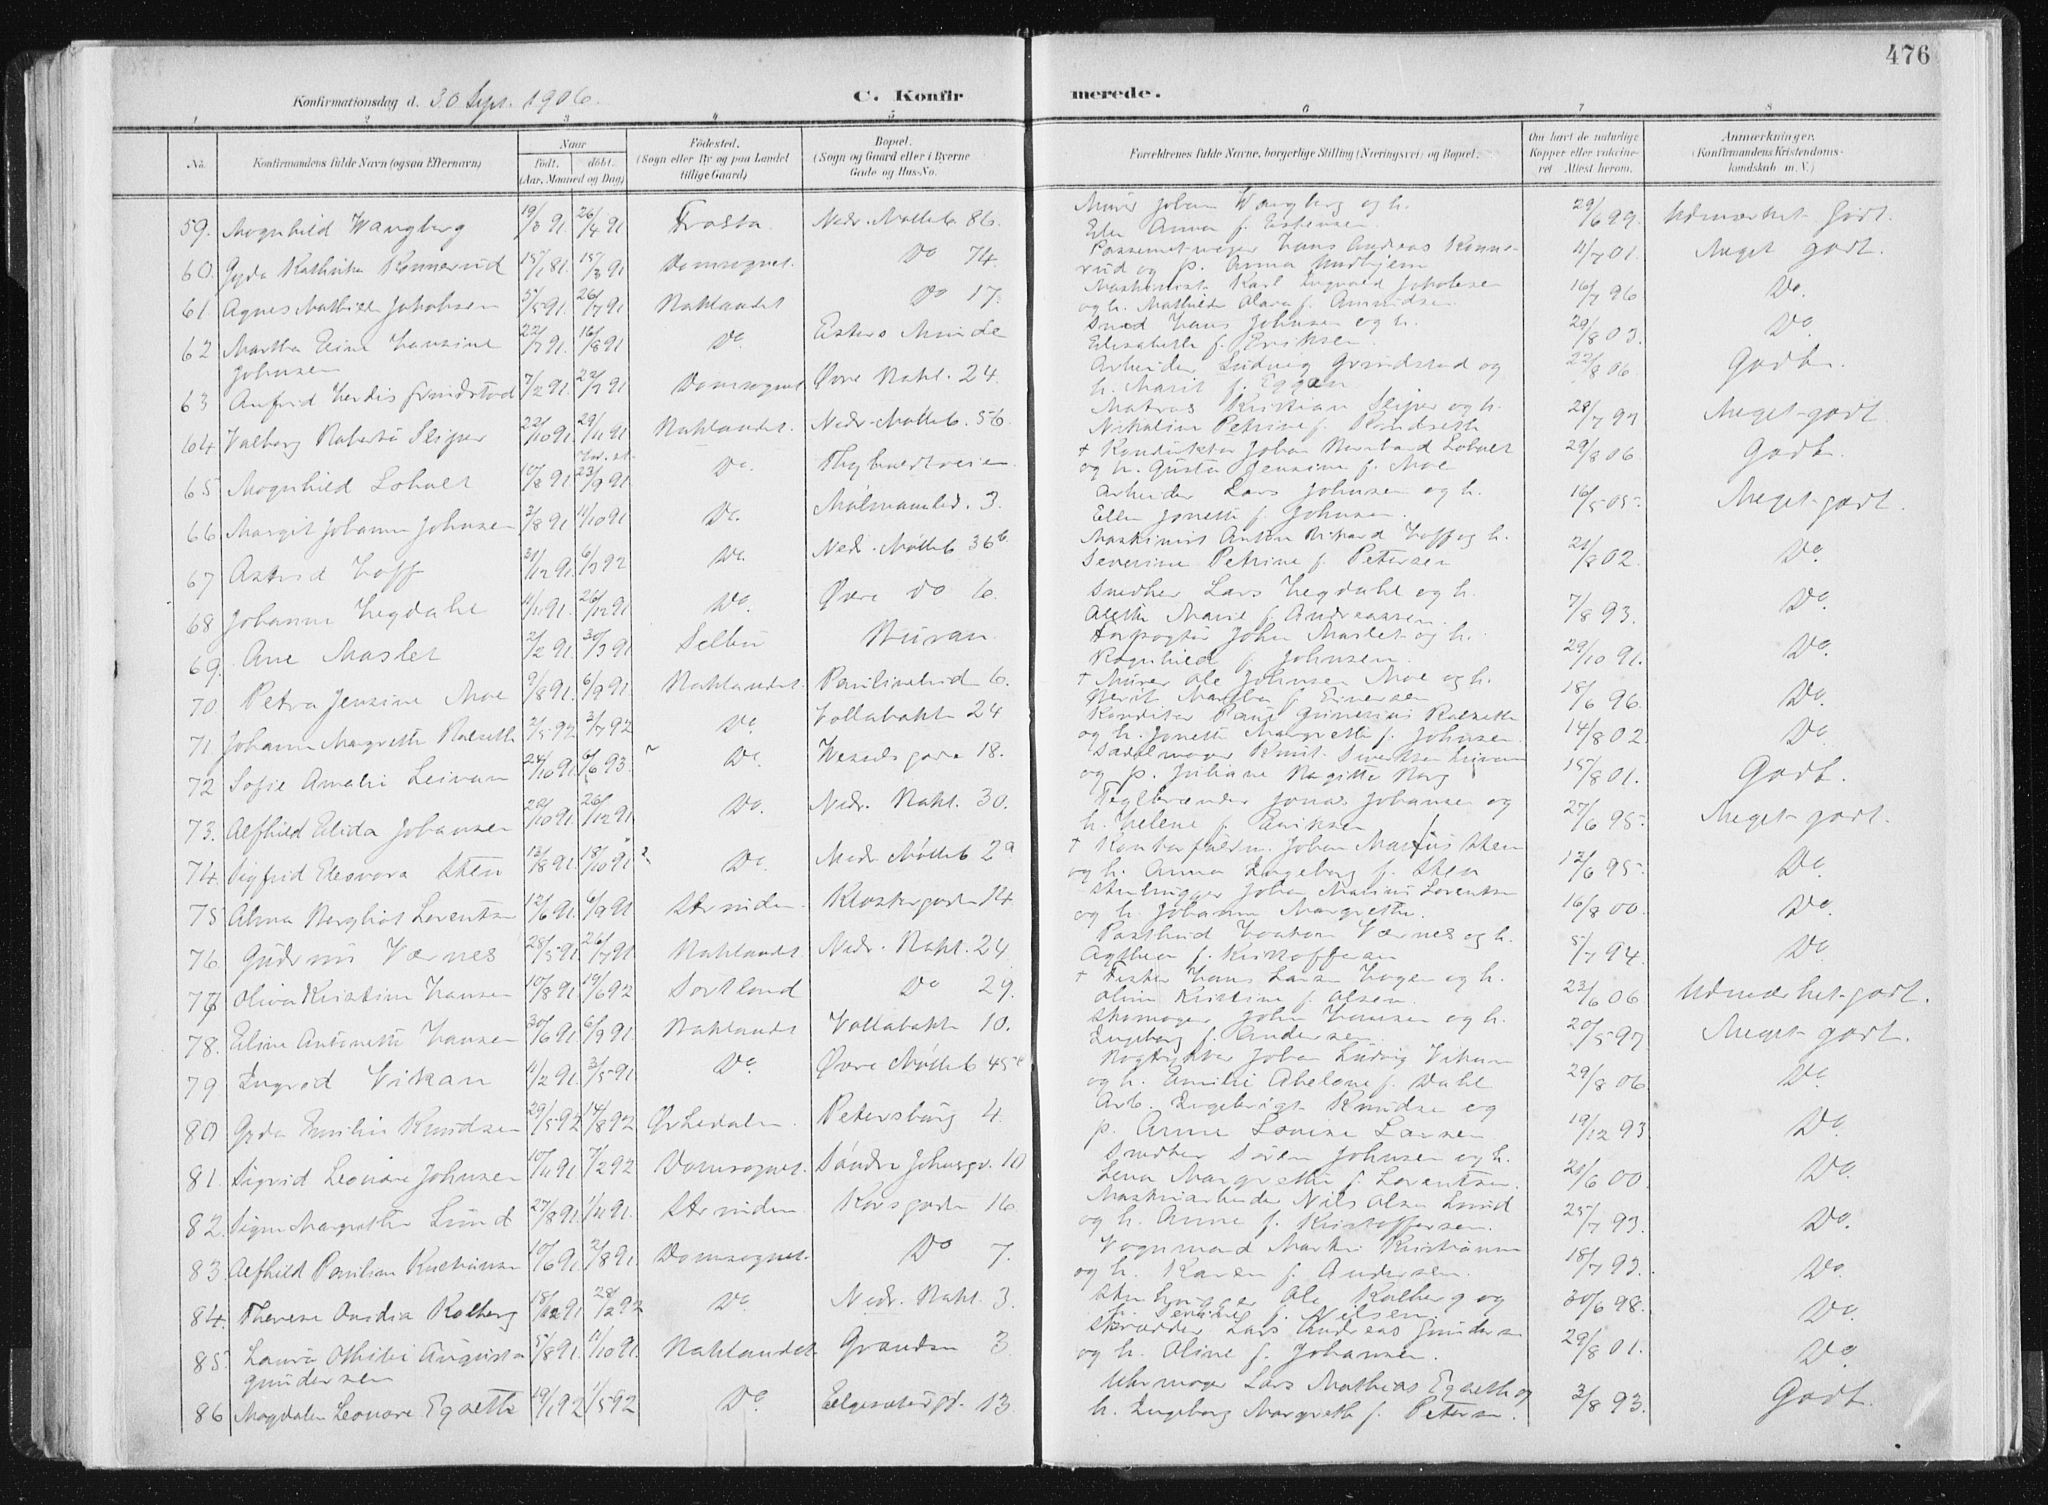 476
Konfirmationsdag d. 30 Sept. 1906.
C. Konfirmerede.
1 2 3 4 5 6 7 8
No. Konfirmandens fulde Navn (ogsaa Efternavn) Naar Födt. döbt. (Aar, Maaned og Dag) Födested. (Sogn eller By og paa Landet tillige Gaard) Bopæl. (Sogn og Gaard eller i Byerne Gade og Hus-No. Forældrenes fulde Navne, borgerlige Stilling (Næringsvei) og Bopæl. Om havt de naturlige Kopper eller vaccineret Attest herom. Anmerkninger. (Konfirmandens Kristendomskundskab m. V.)
59. Magnhild Wangberg 19/3 91 26/4 91 Frosta Nedr. Mølleb 86. Murer Johan Wangberg og h. Anna f. Estensen 29/6 99. Udmærket godt.
60. Gyda Kathinka Konnerud 15/1 81. 15/3 91 Domsognet. Do 74 Hans Andreas Konnerud og p. Anna 4/7 01. Meget godt.
61. Agnes Mathilde Jakobsen 5/5 91. 26/7 91 Baklandet Do 17. Maskinist Karl Ingvald Jakobsen og h. Mathilde Olava f. Amundsen 16/7 96 Do.
62 Martha Eline Hansine Johnsen 22/7 91. 16/8 91 Do. Esters Minde Smed Hans Johnsen og h. Elisabeth f. Eriksen. 29/8 03. Do
63 Anfrid Herdis Grindstad 7/2 91. 22/7 91 Domsognet Øvre Bakl. 24. Arbeider Ludvig Grindstad og h. Marit f. Eggen 22/8 06. Godt.
64 Valborg Roberta Sliper 22/10 91. 29/11 91 Baklandet. Nedr. Mølleb. 56. Matros Kristian Sliper og h. Nikoline Petrine f. Knudseth 28/7 97 Meget godt.
65 Magnhild Solvet 10/8 91 23/9 91 Do. Thyholtveien + Konduktør Johan Bernhard og h. Gusta Jensine f. Moe 29/8 06. Godt.
66 Margit Johanna Johnsen 3/8 91 11/10 91 Do. 3. Arbeider Lars Johnsen og h. Ellen Jonette f. Johnsen. 16/5 05. Meget godt.
67 Astrid Hoff 31/12 91. 6/3 92 Do. Nedr. Mølleb 36b. Maskinist Anton Rikard Hoff og h. Severine Petrine f. Petersen 21/8 02. Do
68 Johanna Hegdahl 4/11 91. 26/12 91 Do. Øvre Do 6. Smedker Lars Hegdahl og h. Alette Marie f. Andreassen. 7/8 93. Do.
69. Ane Maslet 2/2 91. 30/3 91 Selbu Buran. John Maslet og h. Ragnhild f. Johnsen. 29/10 91. Do.
70. Petra Jensine Moe 9/8 91. 6/9 91. Baklandet. Paulinelund 6. + Murer Ole Johnsen Moe og h. Berit Martha f. Einersen 18/6 96. Do.
71. Johanna Margrethe Ralseth 2/5 92 3/7 92 Do. Vollabakk 24 Konditor Paul Gunerius Ralseth og h. Jonette Margrethe f. Johnsen. 14/8 02. Do
72 Sofie Amalie Leivan 24/10 91. 6/6 93. Do. 18. Sadelmager Knut Sivertsen Leivan og p. Juliane Berg 15/8 01. Godt.
73. Alfhild Elida Johansen 22/10 91. 26/12 91. Do. Nedr. Bakl. 30. Teglbrænder Jonas Johansen og h. Helene f. Eriksen 27/6 95. Meget godt.
74. Sigfrid Eleonora Sten 13/8 91. 18/10 91 Do. Nedr. Mølleb 2a + Kontorfuldm. Johan Marius Sten og h. Anna Ingeborg f. Sten 12/6 95. Do.
75 Alma Bergliot Lorentsen 12/6 91. 6/9 91 Strinden. Klostergaden 14. Stenhugger Johan Marius Lorentsen og h. Johanna Margrethe. 16/8 00. Do.
76. Gudrun Værnes 28/5 91. 26/7 91 Baklandet Nedr. Bakl. 24 Postbud Værnes og h. Agthea f. Kristoffersen 5/7 94. Do.
77 Oliva Kristine Hansen 10/8 91. 19/6 92 Sortland Do 29. + Fisker Hans Larsen og h. Oline Kristine f. Olsen. 23/6 06 Udmærket godt.
78. Eline Antonette Hansen 30/6 91. 6/9 91. Baklandet Vollabakk 10. Skomager John Hansen og h. Ingeborg f. Andersen 20/5 97 Meget godt.
79 Ingrid Vikan 11/2 91. 3/5 91. Do. Øvre Mølleb 45c Bogtrykker Johan Ludvig Vikan og h. Emilie Abelone f. Dahl 29/8 06 Do
80 Gyda Emilie Knudsen 29/5 92 14/8 92 Orkedalen. Petersborg 4. Arb. Ingebrigt Knudsen og p. Anne Lovise Larsen 19/12 93 Do.
81. Sigrid Leonore Johnsen 10/11 91. 7/2 92 Domsognet. Søndre Johnsgd. 10 Smedker Søren Johnsen og h. Lena Margrethe f. Lorentsen. 21/6 00. Do
82. Signe Margrethe Lund 27/8 91. 1/11 91. Strinden Korsgaden 16 Maskinarbeider Nils Olsen Lund og h. Anne f. Kristoffersen. 25/7 93. Do.
83. Alfhild Pauline Kristiansen 10/6 91. 2/8 91. Domsognet. Do 7. Vognmand Martin Kristiansen og h. Karen f. Andersen. 18/7 93. Do.
84. Therese Ovidia Kolberg 18/12 91. 28/2 92. Do. Nedr. Bakl. 3. Stenhugger Ole Kolberg og h. f. Nilsen 30/6 98. Do.
85. Laura Othilie Augusta Gundersen 5/8 91. 11/10 91. Baklandet. Granden 3. Skrædder Lars Andreas Gundersen og h. Oline f. Johansen. 29/8 01. Do
86 Magdalene Leonore Egseth 19/1 92 1/5 92 Do. 13. Uhrmager Lars Mathias Egseth og h. Ingeborg Margrethe f. Petersen. 3/8 93. Godt.